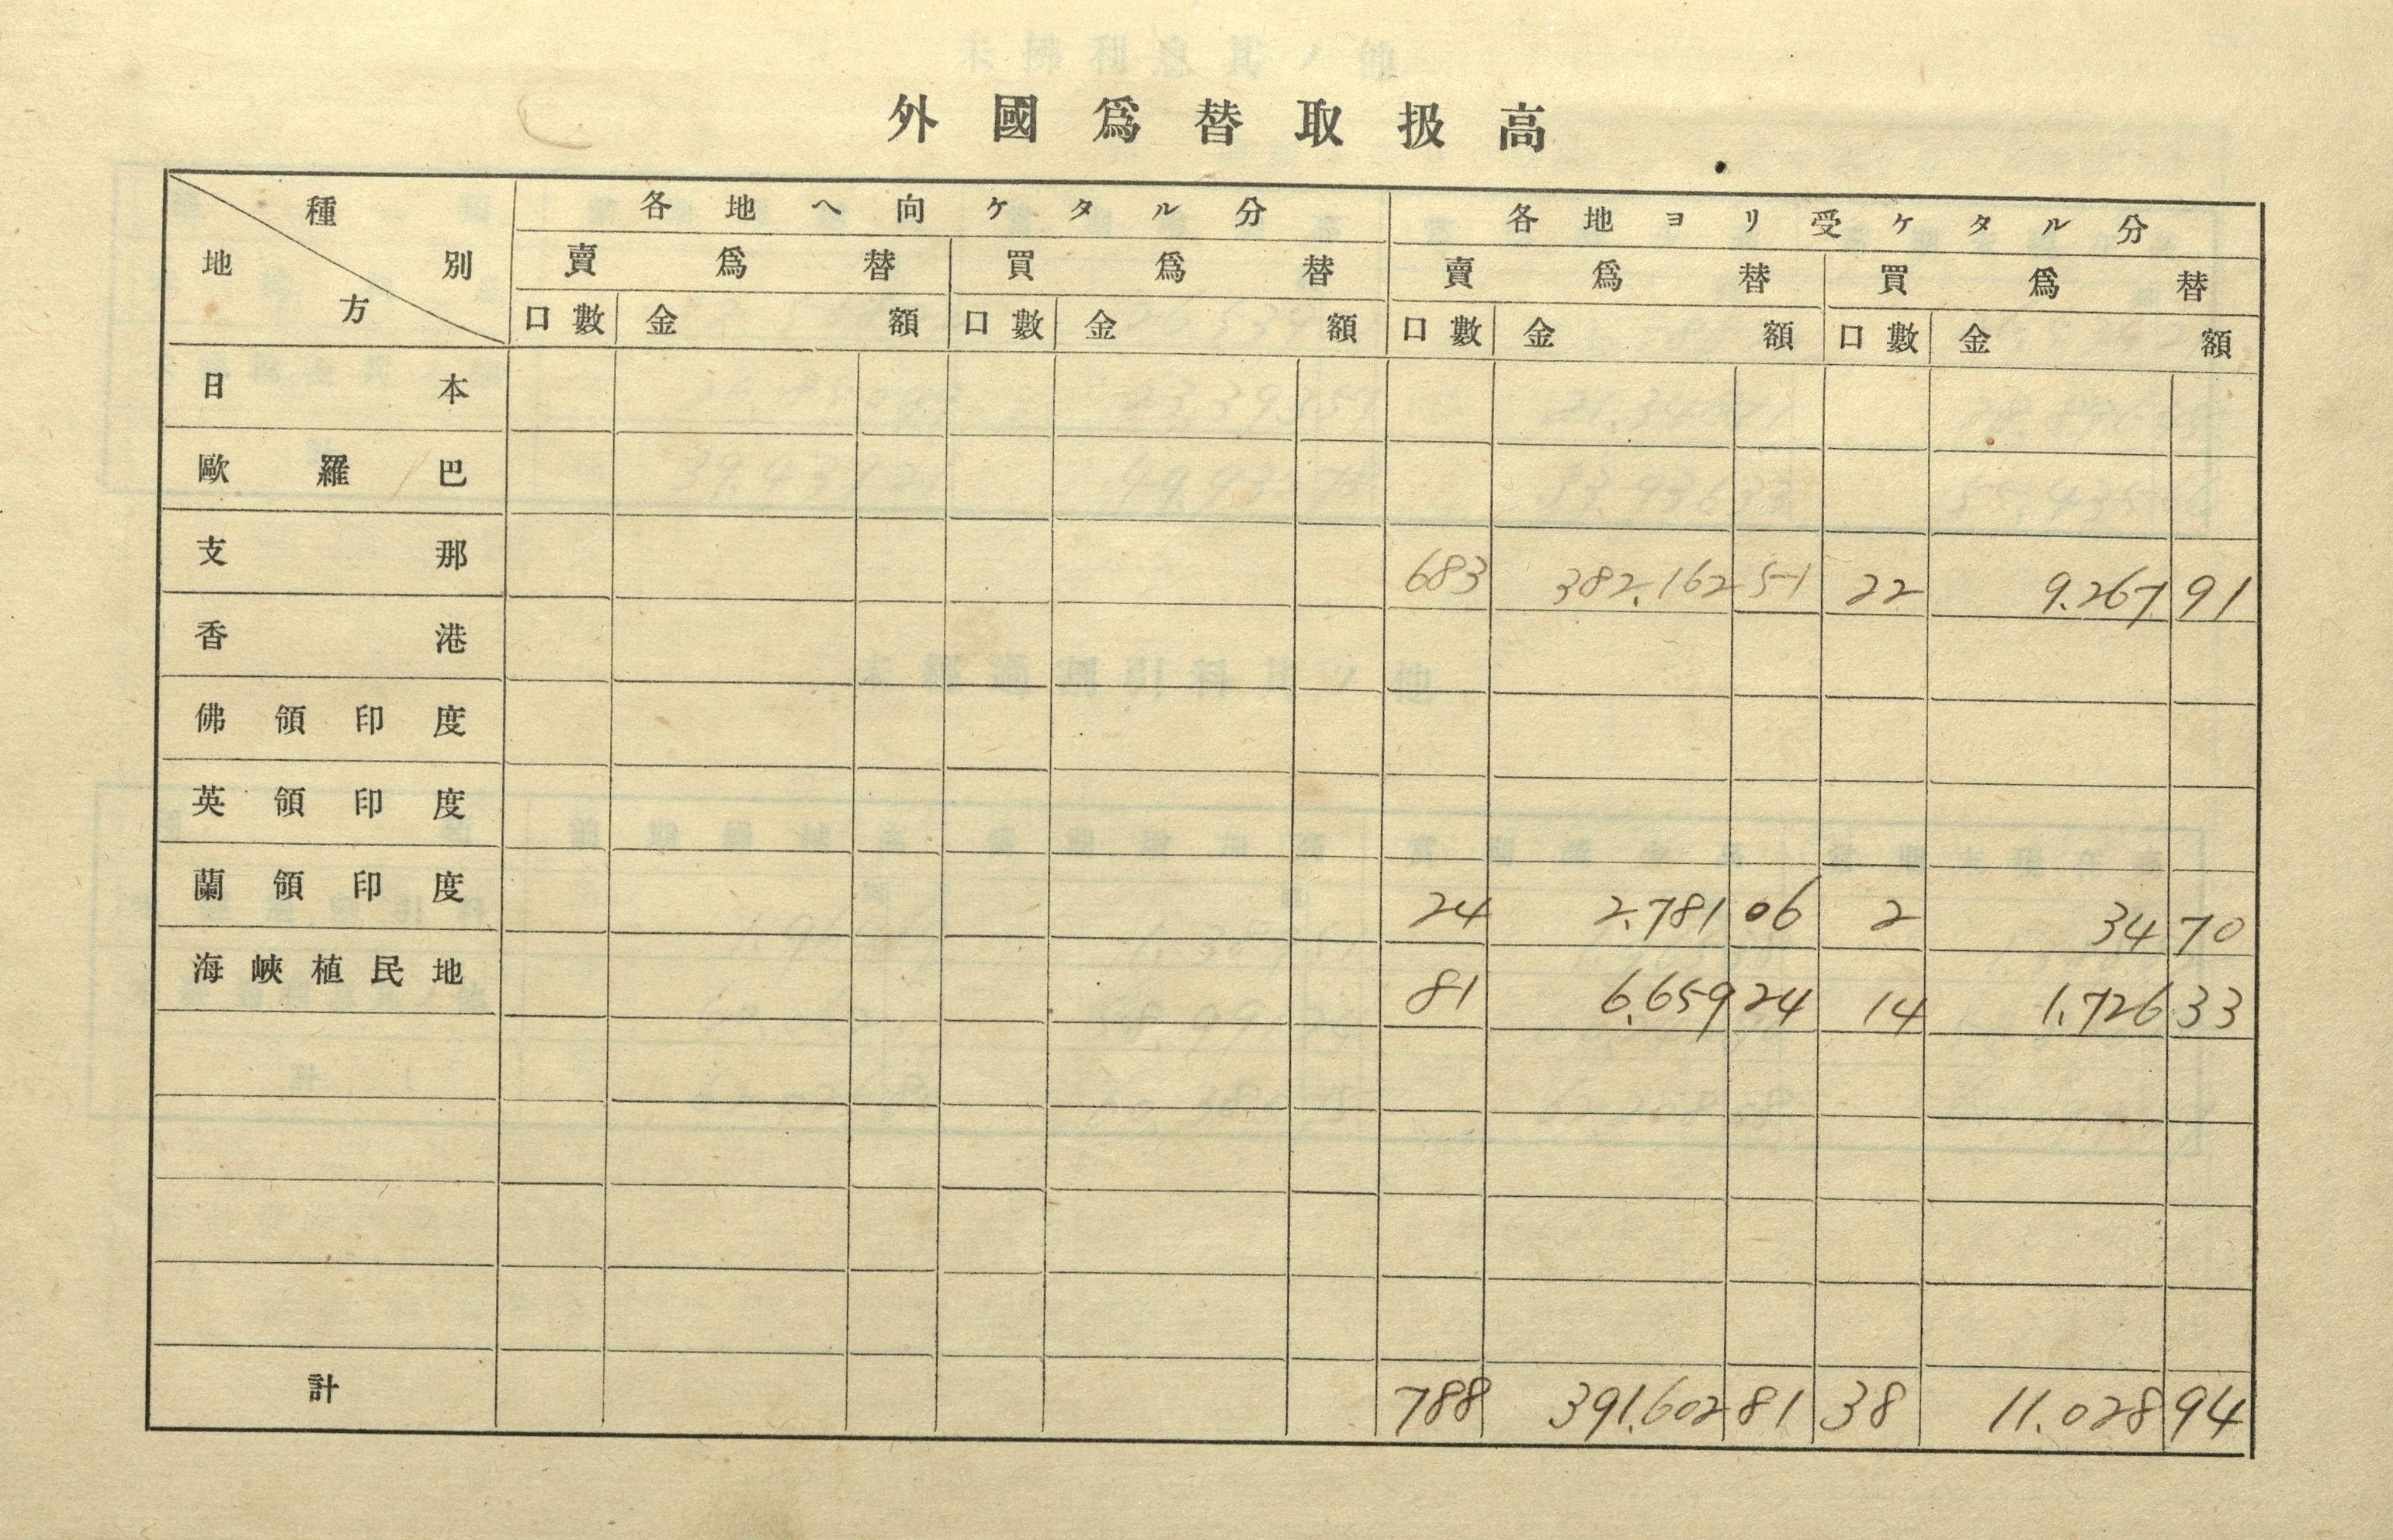 外國爲替取扱高
種別 地方 各地ヘ向ケタル分 各地ヨリ受ケタル分
賣爲替 買爲替 賣爲替 買爲替
口數 金額 口數 金額 口數 金額 口數 金額
日本
歐羅巴
支那 683 382,162 51 22 9,267 91
香港
佛領印度
英領印度
蘭領印度 24 2,781 06 2 34 70
海峽植民地 81 6,659 24 14 1,726 33
計 788 391,602 81 38 11,028 94